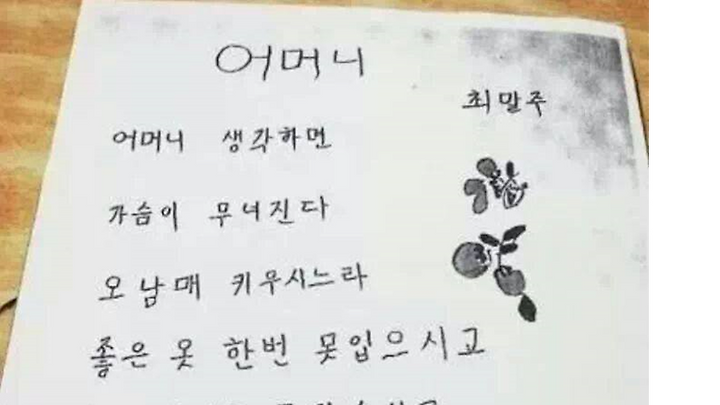 어머니
최말주
어머니 생각하면
가슴이 무너진다
오남매 키우시느라
좋은 옷 한번 못입으시고